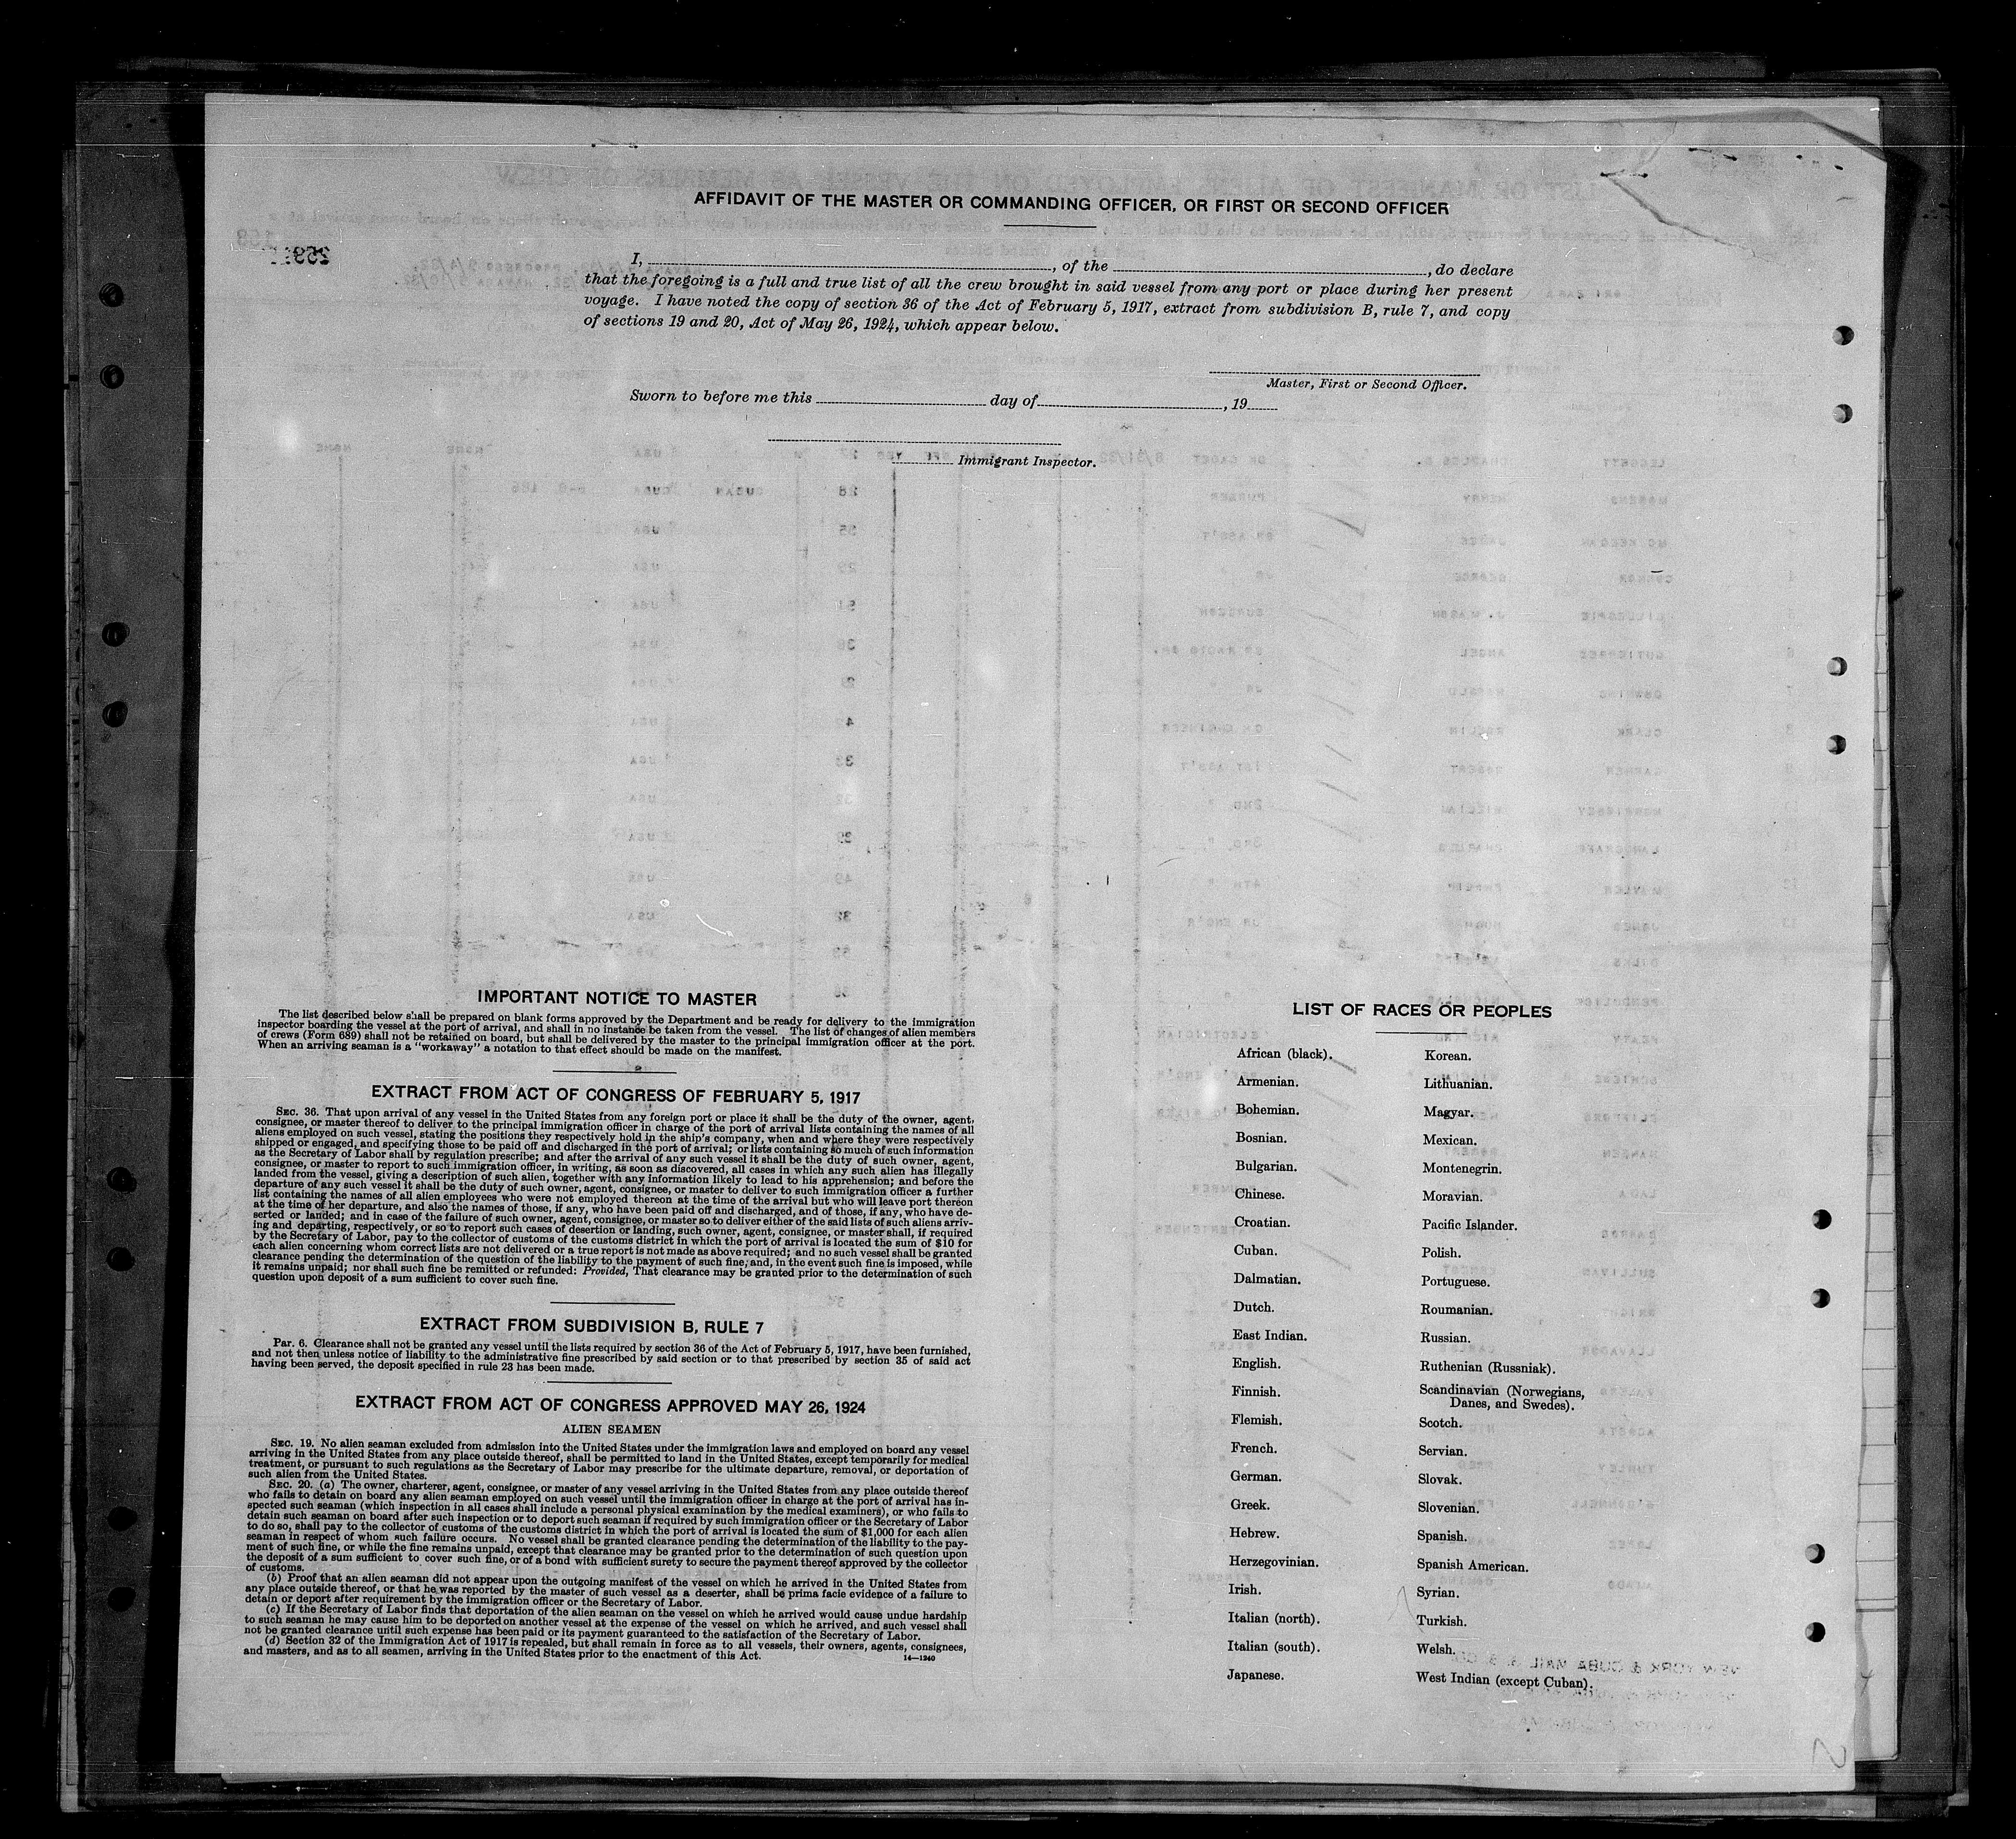 AFFIDAVIT OF THE MASTER OR COMMANDING OFFICER, OR FIRST OR SECOND OFFICER
I, , of the , do declare
that the foregoing is a full and true list of all the crew brought in said vessel from any port or place during her present
voyage. I have noted the copy of section 36 of the Act of February 5, 1917, extract from subdivision B, rule 7, and copy
of sections 19 and 20, Act of May 26, 1924, which appear below.
Master, First or Second Officer.
Sworn to before me this day of , 19
Immigrant Inspector.
IMPORTANT NOTICE TO MASTER
The list described below shall be prepared on blank forms approved by the Department and be ready for delivery to the immigration
inspector boarding the vessel at the port of arrival, and shall in no instance be taken from the vessel. The list of changes of alien members
of crews (Form 689) shall not be retained on board, but shall be delivered by the master to the principal immigration officer at the port.
When an arriving seaman is a "workaway" a notation to that effect should be made on the manifest.
EXTRACT FROM ACT OF CONGRESS OF FEBRUARY 5, 1917
SEC. 36. That upon arrival of any vessel in the United States from any foreign port or place it shall be the duty of the owner, agent,
consignee, or master thereof to deliver to the principal immigration officer in charge of the port of arrival lists containing the names of all
aliens employed on such vessel, stating the positions they respectively hold in the ship's company, when and where they were respectively
shipped or engaged, and specifying those to be paid off and discharged in the port of arrival; or lists containing so much of such information
as the Secretary of Labor shall by regulation prescribe; and after the arrival of any such vessel it shall be the duty of such owner, agent,
consignee, or master to report to such immigration officer, in writing, as soon as discovered, all cases in which any such alien has illegally
landed from the vessel, giving a description of such alien, together with any information likely to lead to his apprehension; and before the
departure of any such vessel it shall be the duty of such owner, agent, consignee, or master to deliver to such immigration officer a further
list containing the names of all alien employees who were not employed thereon at the time of the arrival but who will leave port thereon
at the time of her departure, and also the names of those, if any, who have been paid off and discharged, and of those, if any, who have de-
serted or landed; and in case of the failure of such owner, agent, consignee, or master so to deliver either of the said lists of such aliens arriv-
ing and departing, respectively, or so to report such cases of desertion or landing, such owner, agent, consignee, or master shall, if required
by the Secretary of Labor, pay to the collector of customs of the customs district in which the port of arrival is located the sum of $10 for
each alien concerning whom correct lists are not delivered or a true report is not made as above required; and no such vessel shall be granted
clearance pending the determination of the question of the liability to the payment of such fine, and, in the event such fine is imposed, while
it remains unpaid; nor shall such fine be remitted or refunded: Provided, That clearance may be granted prior to the determination of such
question upon deposit of a sum sufficient to cover such fine.
EXTRACT FROM SUBDIVISION B, RULE 7
Par. 6. Clearance shall not be granted any vessel until the lists required by section 36 of the Act of February 5, 1917, have been furnished,
and not then unless notice of liability to the administrative fine prescribed by said section or to that prescribed by section 35 of said act
having been served, the deposit specified in rule 23 has been made.
EXTRACT FROM ACT OF CONGRESS APPROVED MAY 26, 1924
ALIEN SEAMEN
SEC. 19. No alien seaman excluded from admission into the United States under the immigration laws and employed on board any vessel
arriving in the United States from any place outside thereof, shall be permitted to land in the United States, except temporarily for medical
treatment, or pursuant to such regulations as the Secretary of Labor may prescribe for the ultimate departure, removal, or deportation of
such alien from the United States.
SEC. 20. (a) The owner, charterer, agent, consignee, or master of any vessel arriving in the United States from any place outside thereof
who fails to detain on board any alien seaman employed on such vessel until the immigration officer in charge at the port of arrival has in-
spected such seaman (which inspection in all cases shall include a personal physical examination by the medical examiners), or who fails to
detain such seaman on board after such inspection or to deport such seaman if required by such immigration officer or the Secretary of Labor
to do so, shall pay to the collector of customs of the customs district in which the port of arrival is located the sum of $1,000 for each alien
seaman in respect of whom such failure occurs. No vessel shall be granted clearance pending the determination of the liability to the pay-
ment of such fine, or while the fine remains unpaid, except that clearance may be granted prior to the determination of such question upon
the deposit of a sum sufficient to cover such fine, or of a bond with sufficient surety to secure the payment thereof approved by the collector
of customs.
(b) Proof that an alien seaman did not appear upon the outgoing manifest of the vessel on which he arrived in the United States from
any place outside thereof, or that he was reported by the master of such vessel as a deserter, shall be prima facie evidence of a failure to
detain or deport after requirement by the immigration officer or the Secretary of Labor.
(c) If the Secretary of Labor finds that deportation of the alien seaman on the vessel on which he arrived would cause undue hardship
to such seaman he may cause him to be deported on another vessel at the expense of the vessel on which he arrived, and such vessel shall
not be granted clearance until such expense has been paid or its payment guaranteed to the satisfaction of the Secretary of Labor.
(d) Section 32 of the Immigration Act of 1917 is repealed, but shall remain in force as to all vessels, their owners, agents, consignees,
and masters, and as to all seamen, arriving in the United States prior to the enactment of this Act.
14—1240
LIST OF RACES OR PEOPLES
African (black).
Armenian.
Bohemian.
Bosnian.
Bulgarian.
Chinese.
Croatian.
Cuban.
Dalmatian.
Dutch.
East Indian.
English.
Finnish.
Flemish.
French.
German.
Greek.
Hebrew.
Herzegovinian.
Irish.
Italian (north).
Italian (south).
Japanese.
Korean.
Lithuanian.
Magyar.
Mexican.
Montenegrin.
Moravian.
Pacific Islander.
Polish.
Portuguese.
Roumanian.
Russian.
Ruthenian (Russniak).
Scandinavian (Norwegians,
Danes, and Swedes).
Scotch.
Servian.
Slovak.
Slovenian.
Spanish.
Spanish American.
Syrian.
Turkish.
Welsh.
West Indian (except Cuban).
2